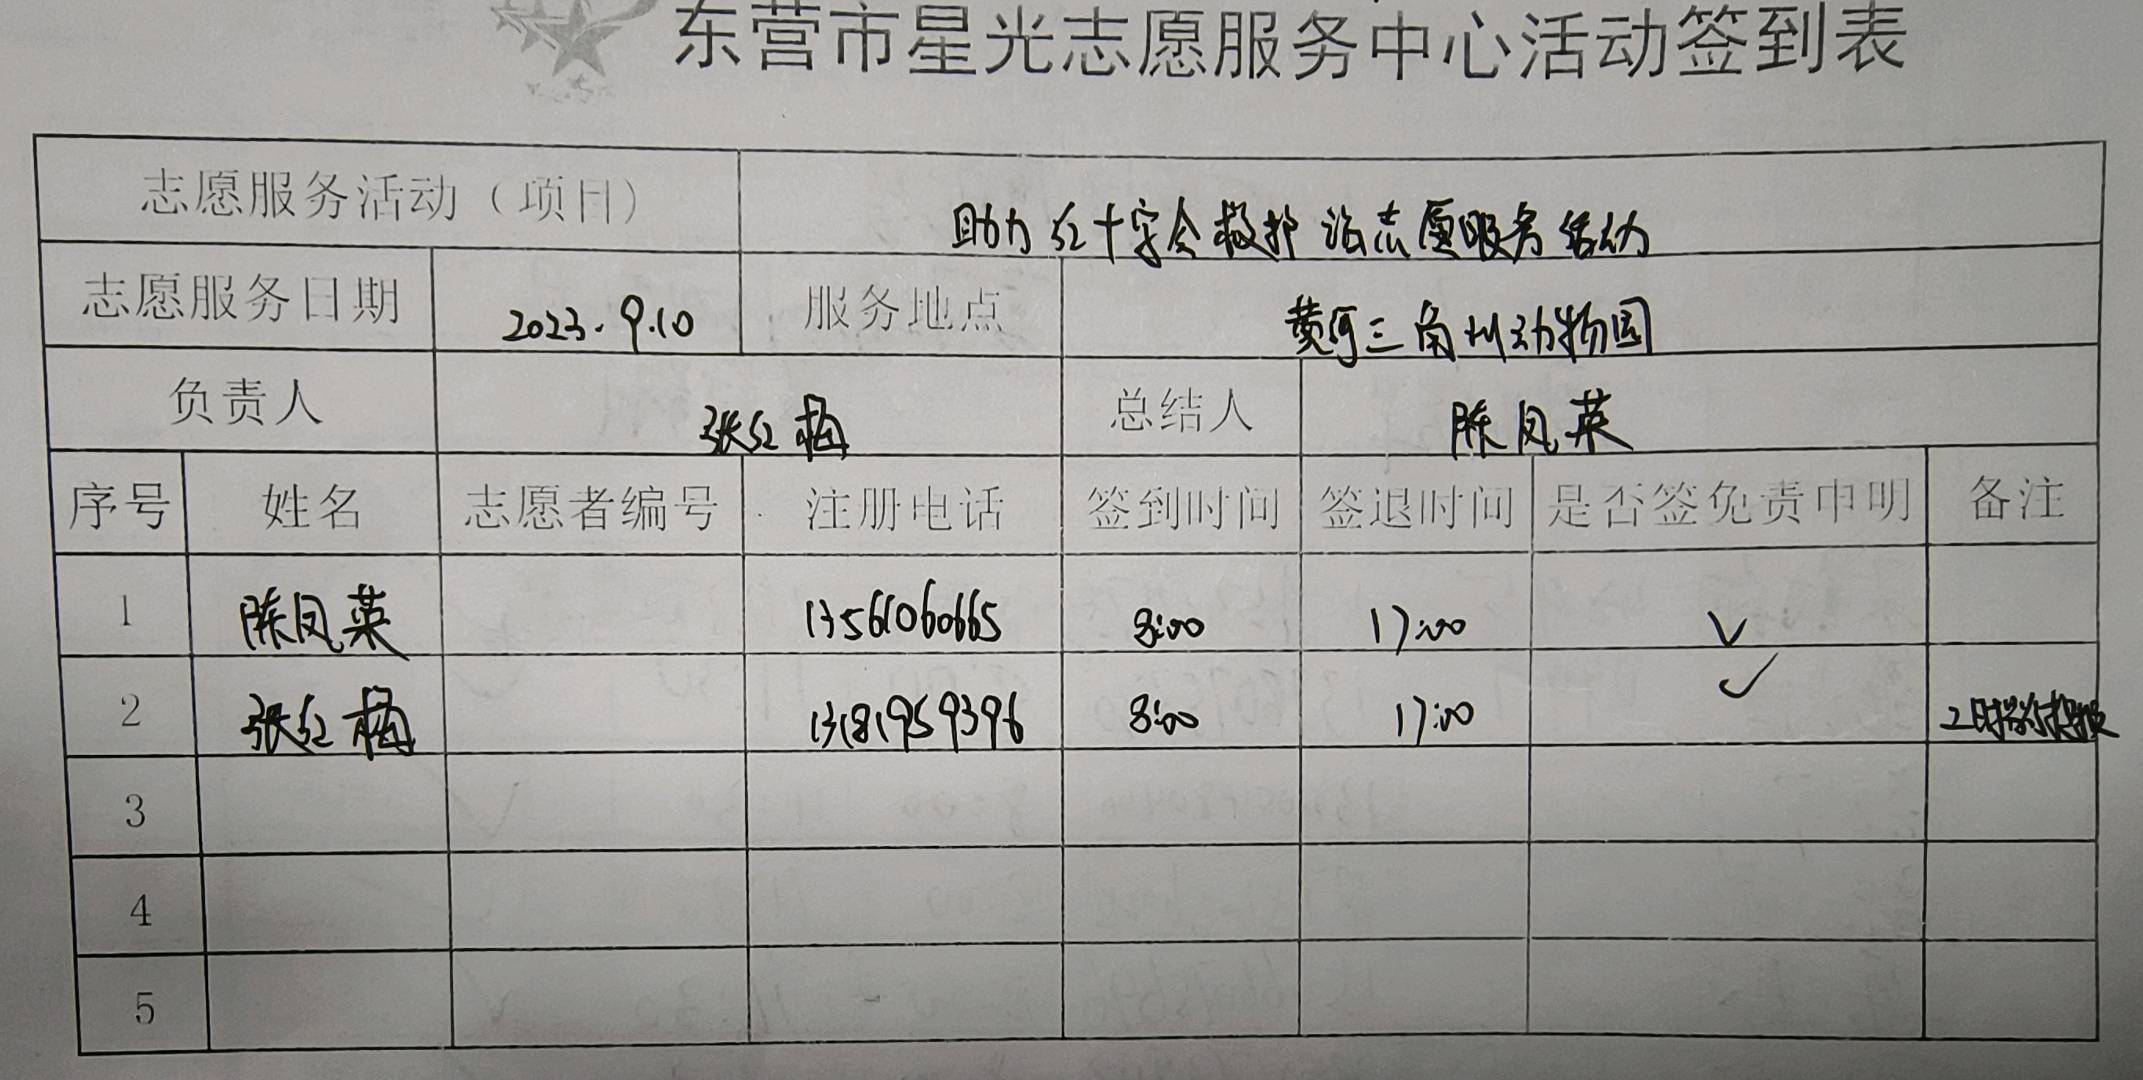 东营市星光志愿服务中心活动签到表
志愿服务活动（项目） 助力红十字会救护站志愿服务活动
志愿服务日期 2023.9.10 服务地点 黄河三角州动物园
负责人 张红梅 总结人 陈凤英
序号 姓名 志愿者编号 注册电话 签到时间 签退时间 是否签免责申明 备注
1 陈凤英 13561060665 8:00 17:00 √
2 张红梅 13181959396 8:00 17:00 √
3
4
5